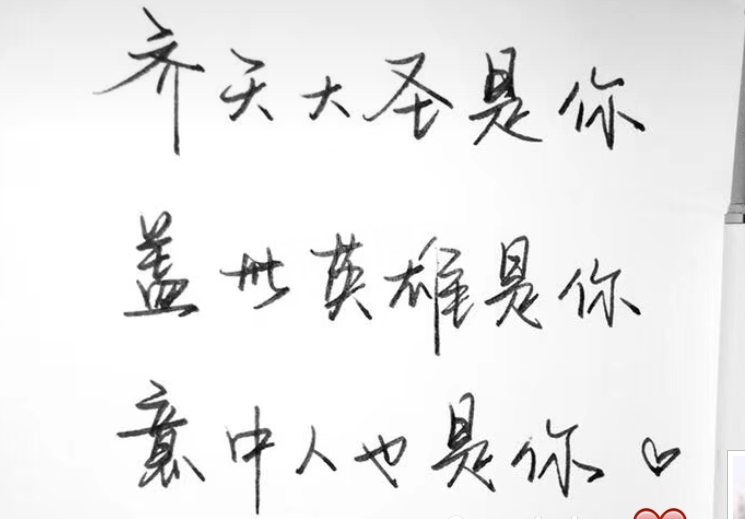 齐天大圣是你
盖世英雄是你
意中人也是你♡